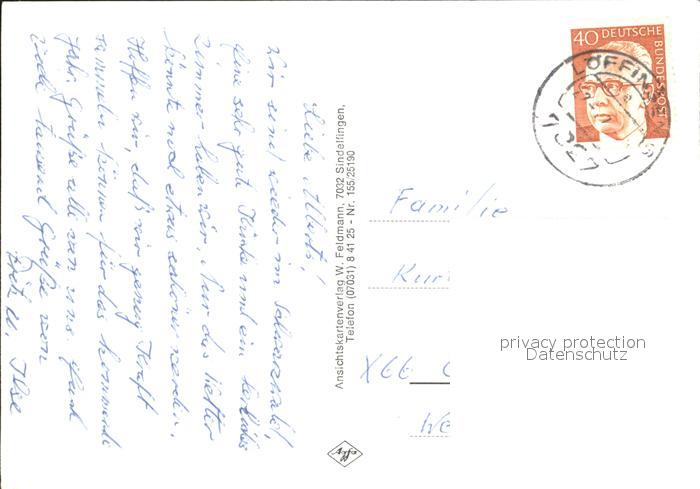 Liebe Alberts!
Wir sind wieder im Schwarzwald,
eine sehr gute Küche und ein herrliches
Zimmer haben wir. Nur das Wetter
könnte noch etwas schöner werden.
Hoffen wir, daß wir genug Kraft
sammeln können für das kommende
Jahr. Grüße alle von uns.
viele tausend Grüße von
Fritz u. Ilse
Ansichtskartenverlag W. Feldmann, 7032 Sindelfingen,
Telefon (07031) 8 41 25 - Nr. 155/25190
agfa
40 DEUTSCHE
BUNDESPOST
LÖFFINGEN
Familie
Kur
X66
We
privacy protection
Datenschutz